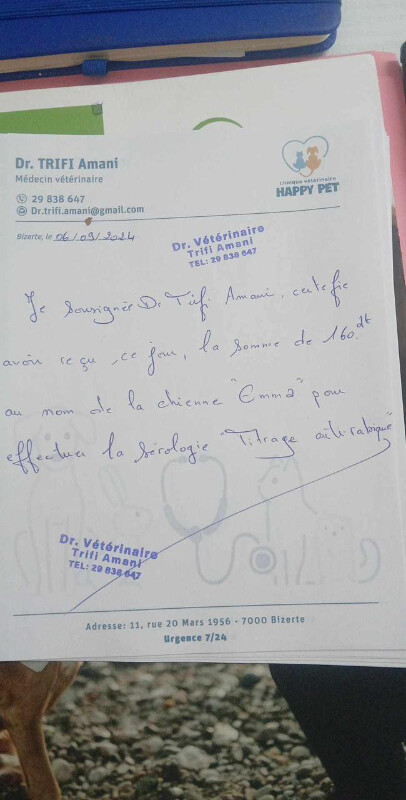 Dr. TRIFI Amani
Médecin vétérinaire
29 838 647
Dr.trifi.amani@gmail.com
clinique vétérinaire
HAPPY PET
Bizerte, le 06/09/2024
Dr. Vétérinaire
Trifi Amani
TEL: 29 838 647
Je soussignée Dr Trifi Amani, certifie
avoir reçu, ce jour, la somme de 160 dt
au nom de la chienne "Emma" pour
effectuer la sérologie "Titrage anti-rabique"
Dr. Vétérinaire
Trifi Amani
TEL: 29 838 647
Adresse: 11, rue 20 Mars 1956 - 7000 Bizerte
Urgence 7/24